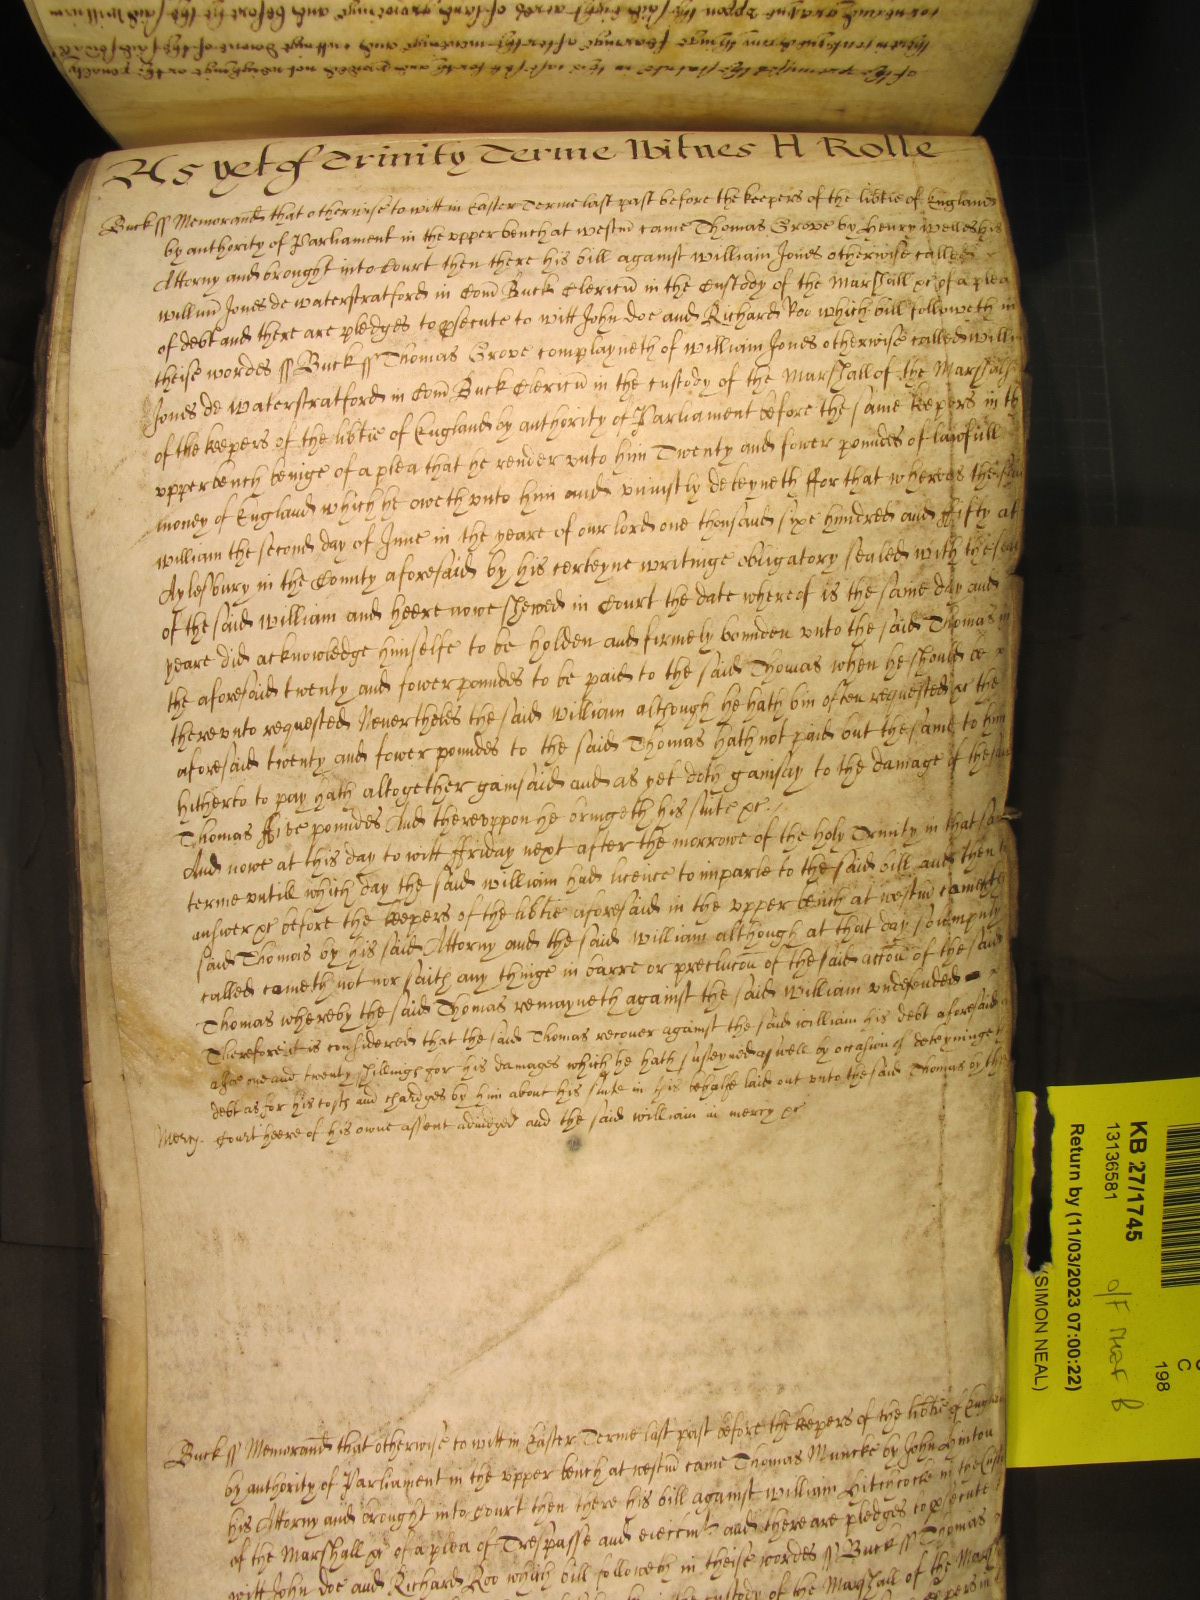 As yet of Trinity Terme Witnes H Rolle
Buck ss Memorand that otherwise to witt in Easter Terme last past before the keepers of the libtie of England
by authority of Parliament in the upper bench at westm came Thomas Grove by Henry Welles his
Attorny and brought into Court then there his bill against William Jones otherwise called
willim Jones de Waterstratford in Com Buck Clericu in the Custody of the Marshall &c of a plea
of debt and there are pledges to psecute to witt John Doe and Richard Roo which bill followeth in
theise wordes ss Buck ss Thomas Grove complayneth of William Jones otherwise called willm
Jones de Waterstratford in Com Buck Clericu in the custody of the Marshall of the Marshals
of the keepers of the libtie of England by authority of Parliament before the same keepers in th
upper bench beinge of a plea that he render unto him Twenty and fower poundes of lawfull
money of England which he oweth unto him and uniustly deteyneth ffor that whereas the said
William the second day of June in the yeare of our lord one thousand sixe hundred and ffifty at
Aylesbury in the County aforesaid by his certeyne writinge obligatory sealed with the seale
of the said William and heere nowe shewed in Court the date whereof is the same day and
yeare did acknowledge himselfe to be holden and firmely bounden unto the said Thomas in
the aforesaid twenty and fower poundes to be paid to the said Thomas when he should be
thereunto requested Nevertheles the said William although he hath bin often requested &c the
aforesaid twenty and fower poundes to the said Thomas hath not paid but the same to him
hitherto to pay hath altogether gainsaid and as yet doth gainsay to the damage of the said
Thomas ffive poundes And thereuppon he bringeth his suite &c
And nowe at this day to witt ffriday next after the morrowe of the holy Trinity in that same
terme untill which day the said William had licence to imparle to the said bill and then to
answer &c before the keepers of the libtie aforesaid in the upper bench at westm cometh the
said Thomas by his said Attorny and the said William although at that day solempnly
called cometh not nor saith any thinge in barre or preclucon of the said accon of the said
Thomas whereby the said Thomas remayneth against the said William undefended
Therefore it is considered that the said Thomas recover against the said William his debt aforesaid
alsoe one and twenty shillings for his damages which he hath susteyned aswell by occasion of deteyninge
debt as for his costs and chardges by him about his suite in his behalfe laid out unto the said Thomas by the
Mercy. Court heere of his owne assent adiudged and the said William in mercy &c
Buck ss Memorand that otherwise to witt in Easter Terme last past before the keepers of the libtie of England
by authority of Parliament in the upper bench at westm came Thomas Muncke by John Hinton
his Attorny and brought into Court then there his bill against William Hitchcocke in the Cust
of the Marshall &c of a plea of Trespasse and eieccm and there are pledges to psecute
witt John Doe and Richard Roo which bill followeth in theise wordes ss Buck ss Thomas
custody of the Marshall of the Mars
KB 27/1745
13136581
Return by (11/03/2023 07:00:22)
(SIMON NEAL)
198
C